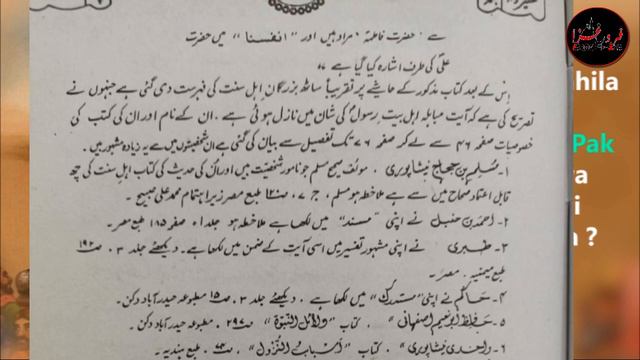 سے، حضرت فاطمہؑ مراد ہیں اور "انفسنا" میں حضرت
علیؑ کی طرف اشارہ کیا گیا ہے "
اِس کے بعد کتاب مذکور کے حاشیے پر تقریباً ساٹھ بزرگانِ اہل سنت کی فہرست دی گئی ہے جنہوں نے
تصریح کی ہے کہ آیت مباہلہ اہل بیتِ رسولؐ کی شان میں نازل ہوئی ہے۔ ان کے نام اور ان کی کتب کی
خصوصیات صفحہ ۴۶ سے لے کر صفحہ ۷۶ تک تفصیل سے بیان کی گئی ہے ان شخصیتوں میں سے یہ زیادہ مشہور ہیں۔
۱۔ مُسلِم بن حجاج نیشاپوری، مولف صحیح مسلم جو نامور شخصیت ہیں اور ان کی حدیث کی کتاب اہلِ سنت کی چھ
قابل اعتماد صحاح میں سے ہے ملاحظہ ہو مسلم، ج ۷، صـ۱۲۰ طبع مصر زیر اہتمام محمد علی صبیح۔
۲۔ احمد بن حنبل نے اپنی "مسند" میں لکھا ہے ملاحظہ ہو جلد ۱، صفحہ ۱۸۵ طبع مصر۔
۳۔ طبری نے اپنی مشہور تفسیر میں اسی آیت کے ضمن میں لکھا ہے۔ دیکھئے جلد ۳، صـ۱۹۲
طبع میمنیہ۔ مصر۔
۴۔ حاکم نے اپنی "مستدرک" میں لکھا ہے۔ دیکھئے جلد ۳، صـ۱۵۰ مطبوعہ حیدرآباد دکن۔
۵۔ حافظ ابو نعیم اصفہانی، کتاب "دلائل النبوۃ" صـ۲۹۷۔ مطبوعہ حیدرآباد دکن۔
۶۔ واحدی نیشاپوری، کتاب "اسباب النزول" صـ۷۴ طبع ہندیہ۔
hila
Pak
a
i
?